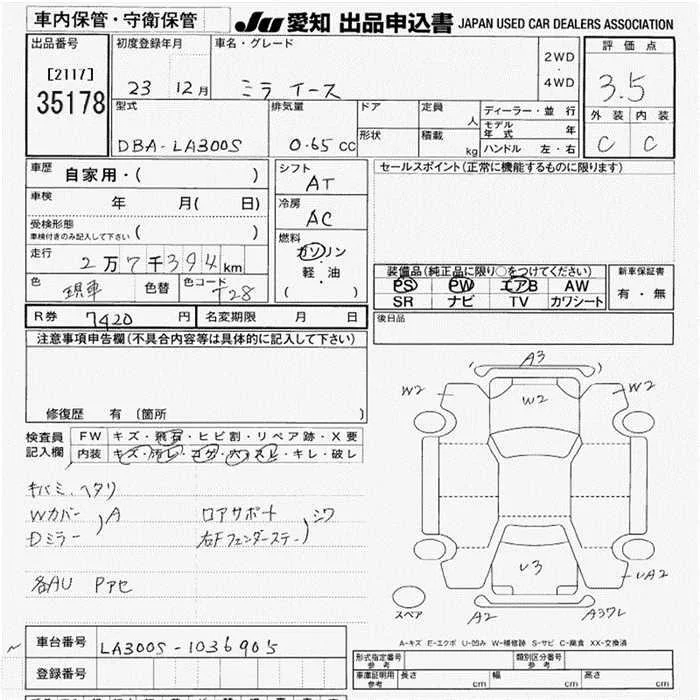 車内保管・守衛保管
JU 愛知 出品申込書 JAPAN USED CAR DEALERS ASSOCIATION
出品番号 初度登録年月 車名・グレード 評価点
[2117] 2WD
35178 23 12月 ミラ イース 4WD 3.5
型式 排気量 ドア 定員 人 ディーラー・並行 外装 内装
モデル年式 年
DBA-LA300S 0.65cc 形状 積載 kg ハンドル 左・右 C C
車歴 自家用・( ) シフト AT セールスポイント(正常に機能するものに限ります)
車検 年 月( 日) 冷房 AC
受検形態
車検付きのみ記入して下さい ( )
走行 2万7千394km 燃料 ガソリン
軽・油
( )
色 現車 色替 色コード T28
装備品(純正品に限り○をつけてください) 新車保証書
PS PW エアB AW 有・無
SR ナビ TV カワシート
R券 7420円 名変期限 月 日 後日品
注意事項申告欄(不具合内容等は具体的に記入して下さい)
修復歴 有 (箇所 )
検査員記入欄 FW キズ・飛石・ヒビ割・リペア跡・X要
内装 キズ・汚レ・コゲ・穴・スレ・キレ・破レ
キバミ、ヘタリ
Wカバー )A ロアサポート )シワ
Dミラー 右Fフェンダーステー
各AU Pアセ
A3
W2 W2 W2
U3
UA2
スペア A2
A-キズ E-エクボ U-凹み W-補修跡 S-サビ C-腐食 XX-交換済
車台番号 LA300S-1036905
登録番号
形式指定番号 参考 類別区分番号 参考
車庫証明用 参考 長さ cm 幅 cm 高さ cm